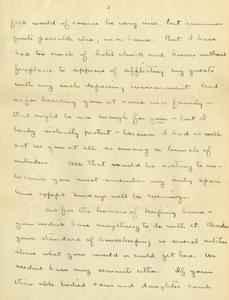 3
fall would of course be very nice, but summer
quite passable also, in a house. But I have
had too much of hotel and houses without
fireplaces to approve of afflicting my guests
with any such depressing environment. And
as for boarding you at some nice family -
that might be nice enough for you - but I
hereby violently protest - because I had as well
not see you at all, as among a bunch of
outsiders. All that would be nothing to me -
because you must remember my only spare
time except Sundays will be evenings.
As for the horrors of keeping house -
you needn't have anything to do with it. Besides
your standard of housekeeping is several notches
above what you would or could get here. We
needn't have any servants either. If your
three able bodied sons and daughters can't